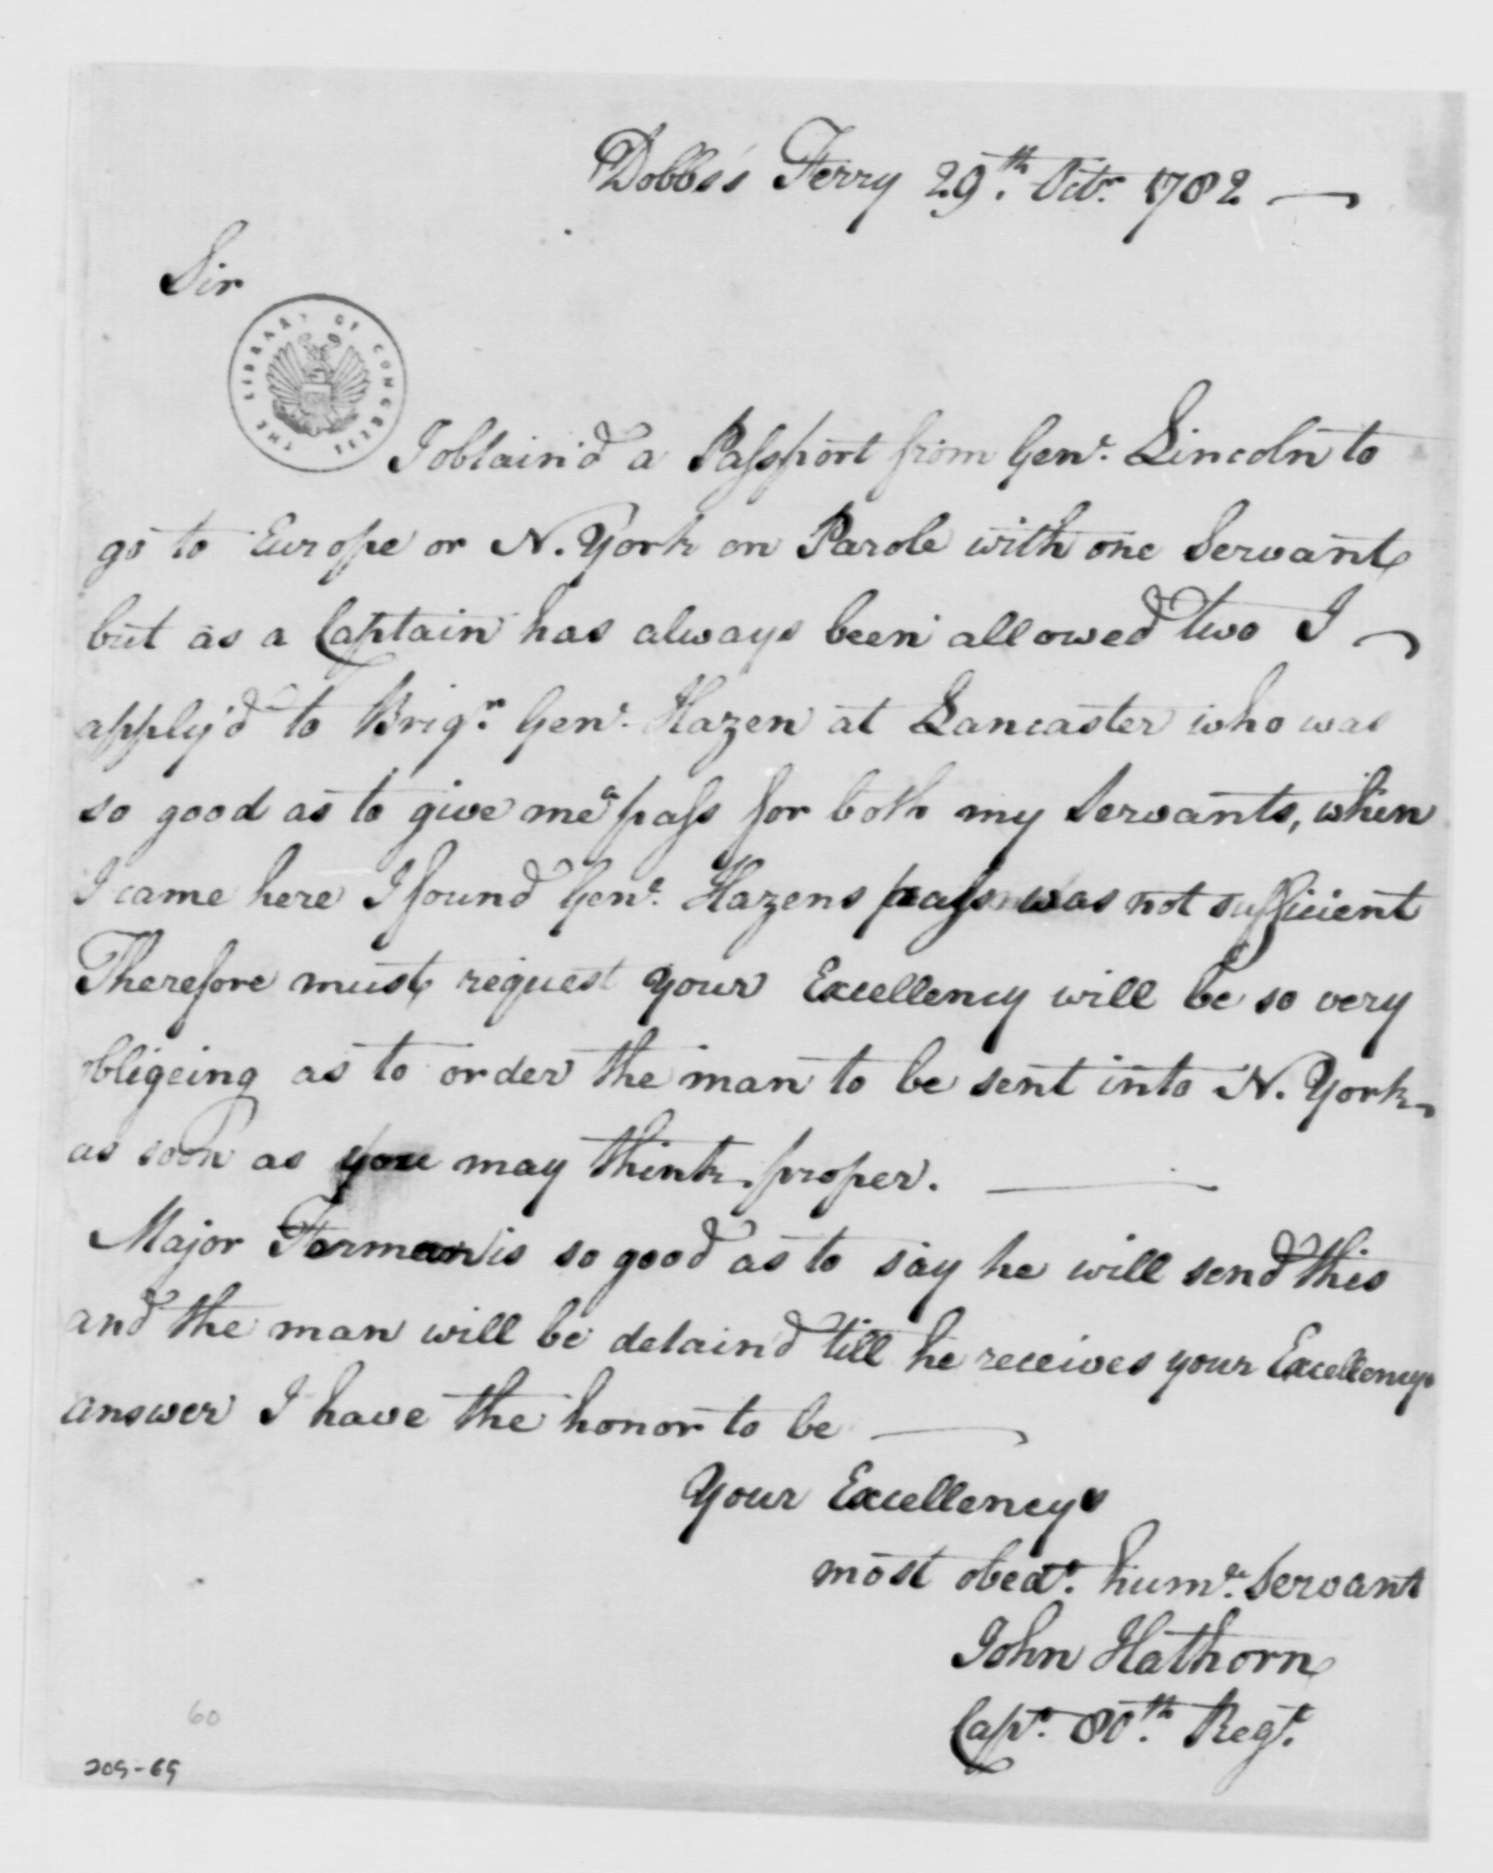 Dobbs's Ferry 29th. Octr. 1782
Sir
THE LIBRARY OF CONGRESS
I obtain'd a Passport from Genl. Lincoln to
go to Europe or N. York on Parole with one Servant
but as a Captain has always been allowed two I
apply'd to Brigr. Genl. Hazen at Lancaster who was
so good as to give me a pass for both my Servants, when
I came here I found Genl. Hazens pass was not sufficient
Therefore must request your Excellency will be so very
obligeing as to order the man to be sent into N. York
as soon as you may think proper.
Major Forman is so good as to say he will send this
and the man will be detain'd till he receives your Excellencys
answer I have the honor to be
Your Excellencys
most obedt. humle. Servant
John Hathorn
Capt. 80th. Regt.
60
209-69